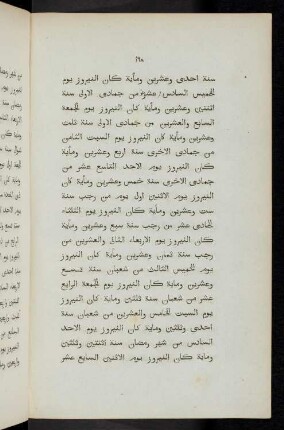 ١٦٨
سنة احدى وعشرين وماية كان النيروز يوم
الخميس السادس عشر من جمادى الاولى سنة
اثنتين وعشرين وماية كان النيروز يوم الجمعة
السابع والعشرين من جمادى الاولى سنة ثلث
وعشرين وماية كان النيروز يوم السبت الثامن
من جمادى الاخرى سنة اربع وعشرين وماية
كان النيروز يوم الاحد التاسع عشر من
جمادى الاخرى سنة خمس وعشرين وماية كان
النيروز يوم الاثنين اول يوم من رجب سنة
ست وعشرين وماية كان النيروز يوم الثلثاء
الحادى عشر من رجب سنة سبع وعشرين وماية
كان النيروز يوم الاربعاء الثانى والعشرين من
رجب سنة ثمان وعشرين وماية كان النيروز
يوم الخميس الثالث من شعبان سنة تسع
وعشرين وماية كان النيروز يوم الجمعة الرابع
عشر من شعبان سنة ثلثين وماية كان النيروز
يوم السبت الخامس والعشرين من شعبان سنة
احدى وثلثين وماية كان النيروز يوم الاحد
السادس من شهر رمضان سنة اثنتين وثلثين
وماية كان النيروز يوم الاثنين السابع عشر